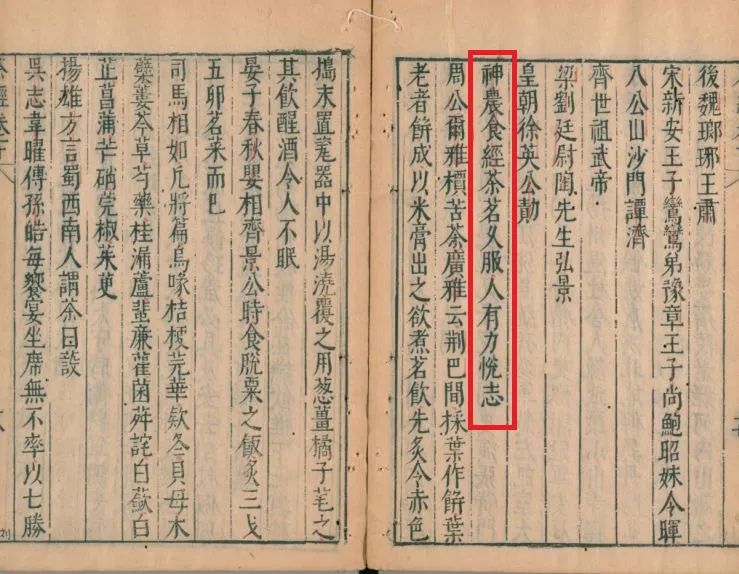 後魏瑯琊王肅
宋新安王子鸞鸞弟豫章王子尚鮑昭妹令暉
八公山沙門譚濟
齊世祖武帝
梁劉廷尉陶先生弘景
皇朝徐英公勣
神農食經茶茗乆服人有力悅志
周公爾雅檟苦茶廣雅云荆巴間採葉作餅葉
老者餅成以米膏出之欲煮茗飲先炙令赤色
搗末置甆器中以湯澆覆之用葱薑橘子芼之
其飲醒酒令人不眠
晏子春秋嬰相齊景公時食脫粟之飯炙三戈
五卵茗菜而巳
司馬相如凡將篇烏喙桔梗芫華款冬貝母木
蘗蔞芩草芍藥桂漏蘆蜚廉雚菌荈詫白蘞白
芷菖蒲芒硝莞椒茱萸
揚雄方言蜀西南人謂茶曰蔎
吳志韋曜傳孫皓每饗宴坐席無不率以七勝
茶經卷下